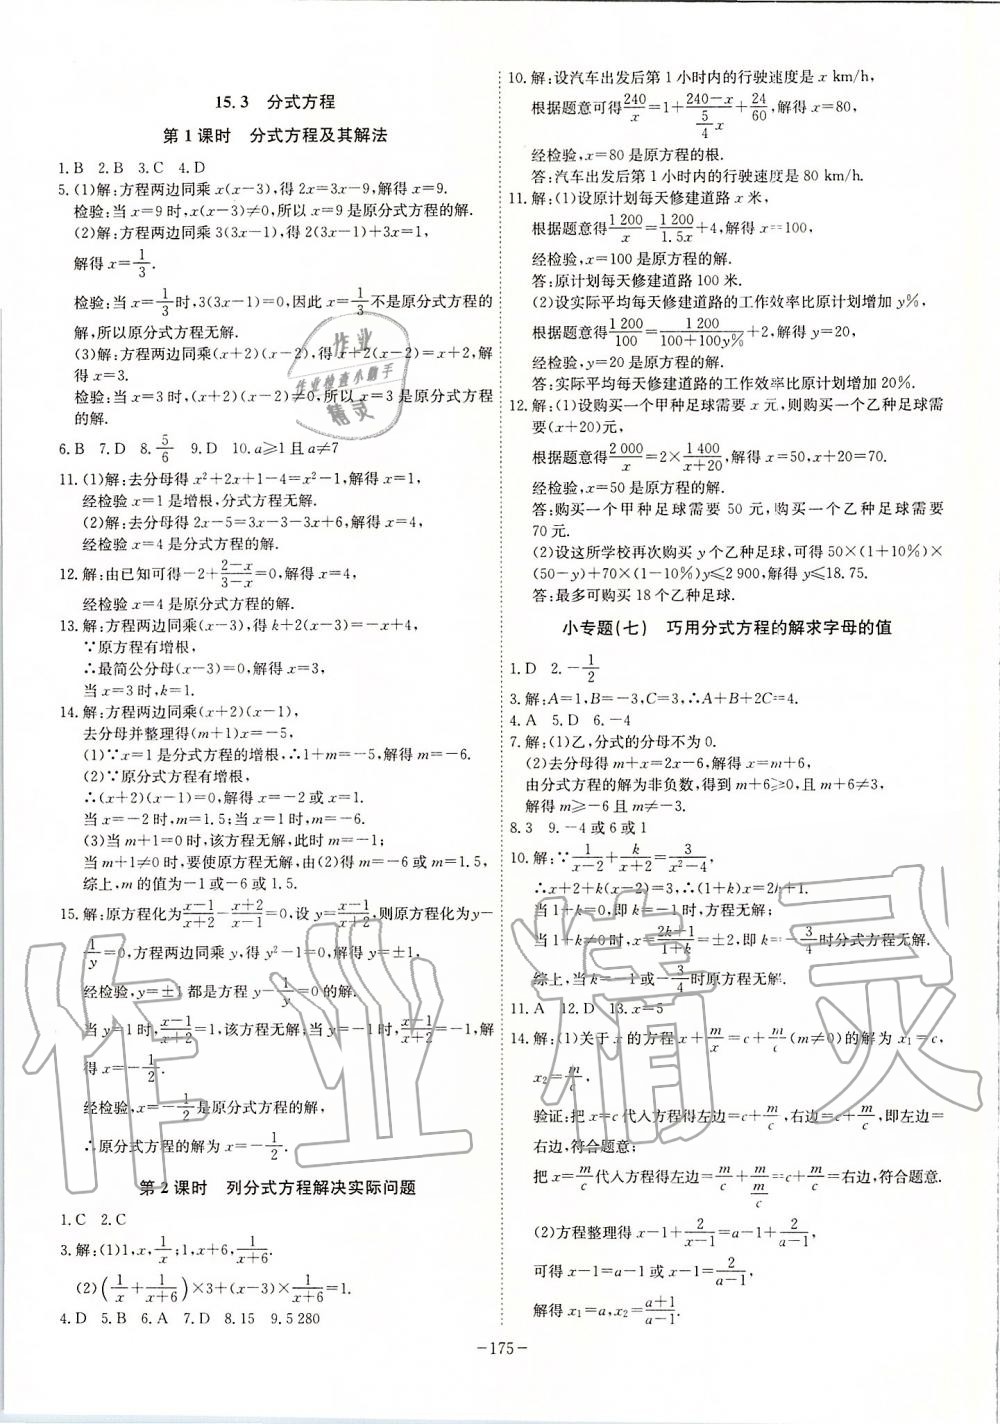 15.3 分式方程
第1课时 分式方程及其解法
1.B 2.B 3.C 4.D
5.(1)解:方程两边同乘x(x-3),得2x=3x-9,解得x=9.
检验:当x=9时,x(x-3)≠0,所以x=9是原分式方程的解.
(2)解:方程两边同乘3(3x-1),得2(3x-1)+3x=1,
解得x=1/3.
检验:当x=1/3时,3(3x-1)=0,因此x=1/3不是原分式方程的
解,所以原分式方程无解.
(3)解:方程两边同乘(x+2)(x-2),得x+2(x-2)=x+2,解
得x=3.
检验:当x=3时,(x+2)(x-2)≠0,所以x=3是原分式方程
的解.
6.B 7.D 8.5/6 9.D 10.a≥1且a≠7
11.(1)解:去分母得x²+2x+1-4=x²-1,解得x=1,
经检验x=1是增根,分式方程无解.
(2)解:去分母得2x-5=3x-3-3x+6,解得x=4,
经检验x=4是分式方程的解.
12.解:由已知可得-2+(2-x)/(3-x)=0,解得x=4,
经检验x=4是原分式方程的解.
13.解:方程两边同乘(x-3),得k+2(x-3)=-x+4,
∵原方程有增根,
∴最简公分母(x-3)=0,解得x=3,
当x=3时,k=1.
14.解:方程两边同乘(x+2)(x-1),
去分母并整理得(m+1)x=-5,
(1)∵x=1是分式方程的增根,∴1+m=-5,解得m=-6.
(2)∵原分式方程有增根,
∴(x+2)(x-1)=0,解得x=-2或x=1.
当x=-2时,m=1.5;当x=1时,m=-6.
(3)当m+1=0时,该方程无解,此时m=-1;
当m+1≠0时,要使原方程无解,由(2)得m=-6或m=1.5,
综上,m的值为-1或-6或1.5.
15.解:原方程化为(x-1)/(x+2)-(x+2)/(x-1)=0,设y=(x-1)/(x+2),则原方程化为y-
1/y=0,方程两边同乘y,得y²-1=0,解得y=±1,
经检验,y=±1都是方程y-1/y=0的解.
当y=1时,(x-1)/(x+2)=1,该方程无解;当y=-1时,(x-1)/(x+2)=-1,解
得x=-1/2.
经检验,x=-1/2是原分式方程的解,
∴原分式方程的解为x=-1/2.
第2课时 列分式方程解决实际问题
1.C 2.C
3.解:(1)1,x,1/x;1,x+6,1/(x+6).
(2)(1/x+1/(x+6))×3+(x-3)×1/(x+6)=1.
4.D 5.B 6.A 7.D 8.15 9.5 280
10.解:设汽车出发后第1小时内的行驶速度是x km/h,
根据题意可得240/x=1+(240-x)/(5/4 x)+24/60,解得x=80,
经检验,x=80是原方程的根.
答:汽车出发后第1小时内的行驶速度是80 km/h.
11.解:(1)设原计划每天修建道路x米,
根据题意得1 200/x=1 200/1.5x+4,解得x=100,
经检验,x=100是原方程的解.
答:原计划每天修建道路100米.
(2)设实际平均每天修建道路的工作效率比原计划增加y%,
根据题意得1 200/100=1 200/(100+100y%)+2,解得y=20,
经检验,y=20是原方程的解.
答:实际平均每天修建道路的工作效率比原计划增加20%.
12.解:(1)设购买一个甲种足球需要x元,则购买一个乙种足球需
要(x+20)元,
根据题意得2 000/x=2×1 400/(x+20),解得x=50,x+20=70.
经检验,x=50是原方程的解.
答:购买一个甲种足球需要50元,购买一个乙种足球需要
70元.
(2)设这所学校再次购买y个乙种足球,可得50×(1+10%)×
(50-y)+70×(1-10%)y≤2 900,解得y≤18.75.
答:最多可购买18个乙种足球.
小专题(七) 巧用分式方程的解求字母的值
1.D 2.-1/2
3.解:A=1,B=-3,C=3,∴A+B+2C=4.
4.A 5.D 6.-4
7.解:(1)乙,分式的分母不为0.
(2)去分母得m+x=2x-6,解得x=m+6,
由分式方程的解为非负数,得到m+6≥0,且m+6≠3,
解得m≥-6且m≠-3.
8.3 9.-4或6或1
10.解:∵1/(x-2)+k/(x+2)=3/(x²-4),
∴x+2+k(x-2)=3,∴(1+k)x=2k+1.
当1+k=0,即k=-1时,方程无解;
当1+k≠0时,x=(2k+1)/(1+k)=±2,即k=-3/4时分式方程无解.
综上,当k=-1或-3/4时原方程无解.
11.A 12.D 13.x=5
14.解:(1)关于x的方程x+m/x=c+m/c(m≠0)的解为x₁=c,
x₂=m/c,
验证:把x=c代入方程得左边=c+m/c,右边=c+m/c,即左边=
右边,符合题意;
把x=m/c代入方程得左边=m/c+m/(m/c)=m/c+c=右边,符合题意.
(2)方程整理得x-1+2/(x-1)=a-1+2/(a-1),
可得x-1=a-1或x-1=2/(a-1),
解得x₁=a,x₂=(a+1)/(a-1).
-175-
作业
作业检查小助手
精灵
作业精灵